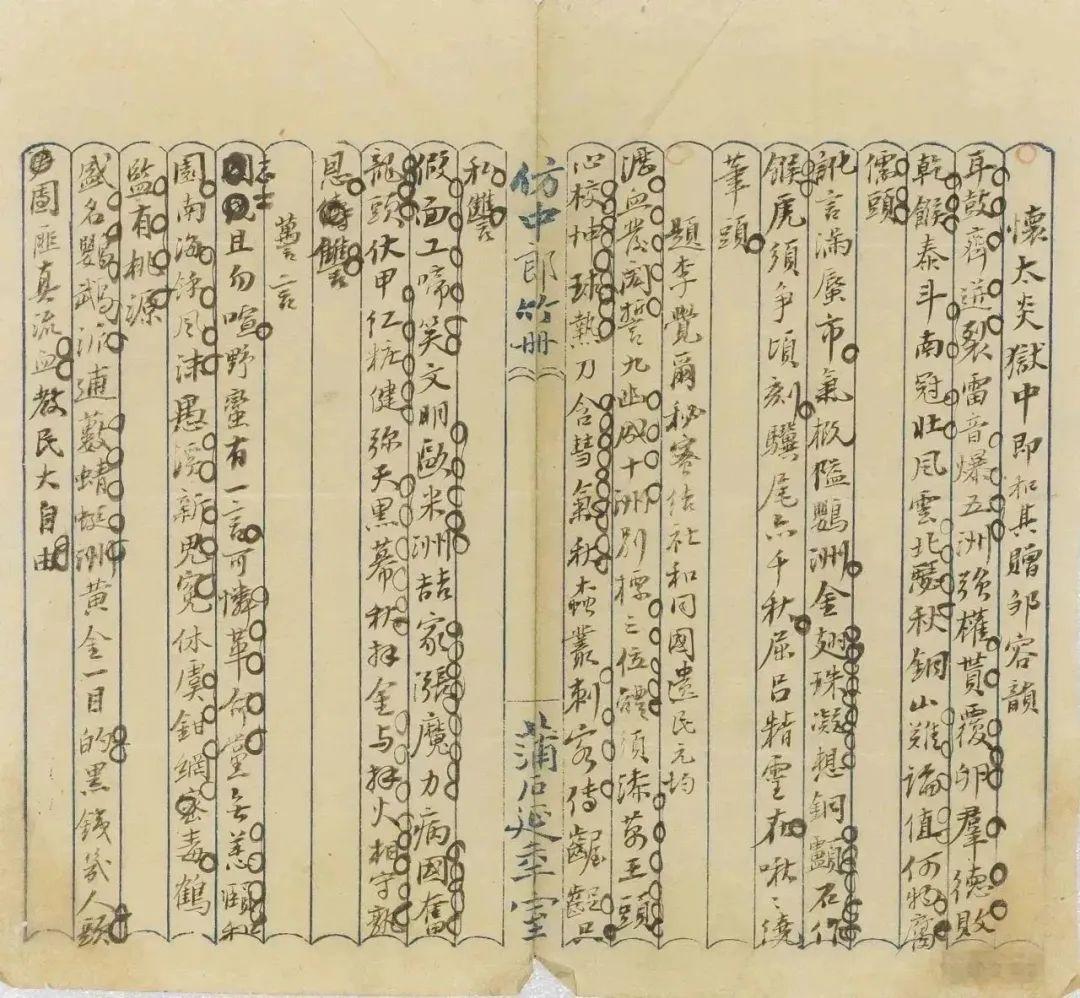 懷太炎獄中即和其贈鄒容韻
耳鼓齊迸裂雷音爆五洲強權蕡覆卵羣德敗
乾餱泰斗南冠壯風雲北鶩秋銅山難論值何物腐
儒頭
訛言滿蜃市氣概隘鸚洲金翅珠凝想銅顱石作
餱虎須爭頃刻驥尾亦千秋屈呂精靈在啾〻繞
筆頭
題李覺爾秘密結社和同國遺民元均
瀝血發閎誓九幽成十洲別標三位體須漆萬王頭
心校坤球熱刀含彗氣秋蟲叢刺客傳齷齪只
私讐
仿中郎竹冊
蒲石延年室
假面工啼笑文明歐米洲喆家漲魔力病國奮
龍頭伏甲仁粧健弥天黑幕秋拜金与拜火相守孰
恩讎
萬言
志士且勿喧野蠻有一言可憐革命黨無恙頤和
園南海錚風沫愚溪新鬼冤休虞鉗網密毒鶴
監有桃源
盛名鸚鵡派逋藪蜻蜓洲黃金一目的黑鐵幾人頭
團匪真流血教民大自由